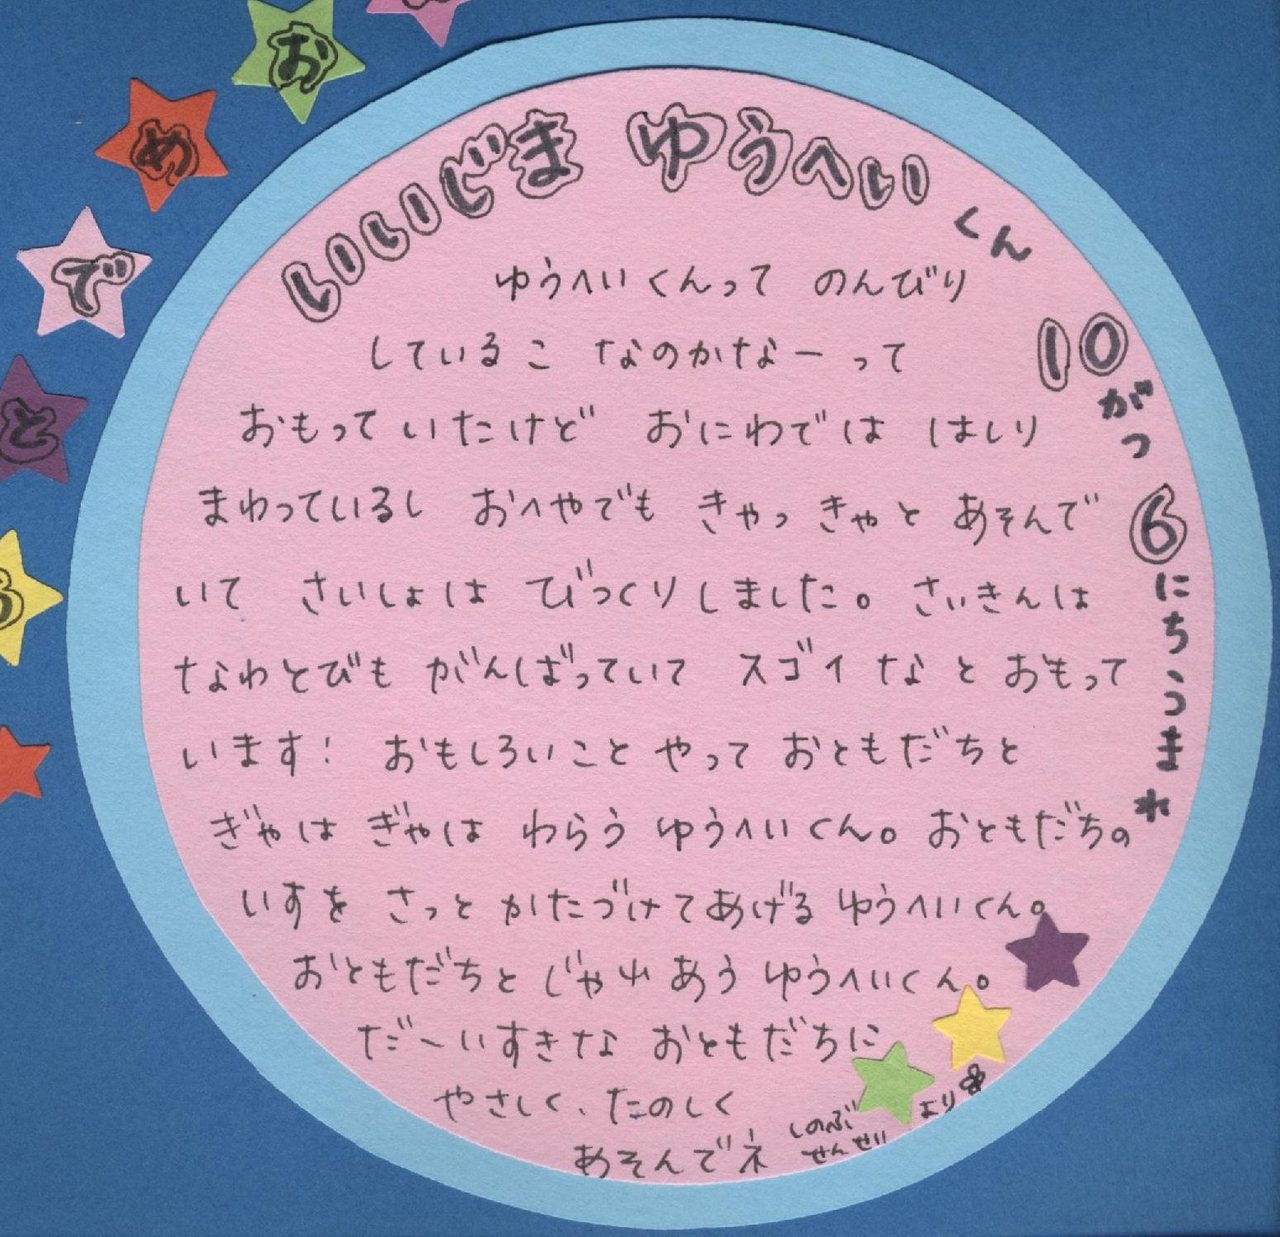 お
め
で
と
いいじま ゆうへい くん
10がつ6にちうまれ
ゆうへいくんって のんびり
しているこ なのかなーって
おもっていたけど おにわでは はしり
まわっているし おへやでも きゃっきゃと あそんで
いて さいしょは びっくりしました。さいきんは
なわとびも がんばっていて スゴイ なと おもって
います! おもしろいこと やって おともだちと
ぎゃはぎゃは わらう ゆうへいくん。おともだちの
いすを さっと かたづけてあげる ゆうへいくん。
おともだちと じゃれあう ゆうへいくん。
だ〜いすきな おともだちに
やさしく、たのしく
あそんでネ
しのぶ
せんせい
より